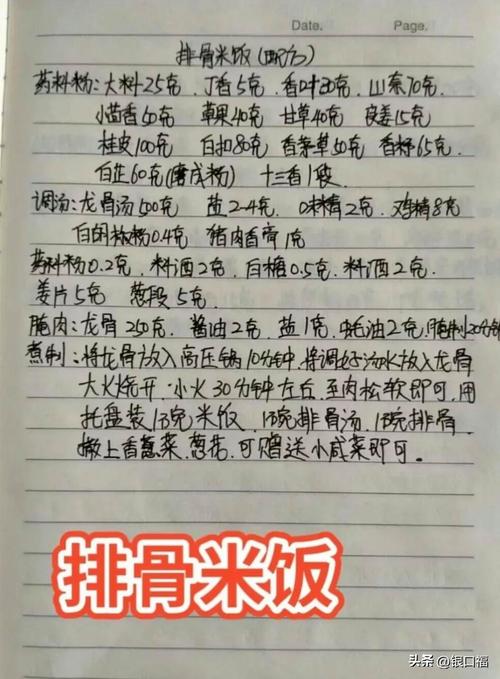 Date. Page.
排骨米饭(配方)
药料粉:大料25克、丁香5克、香叶30克、山奈70克、
小茴香50克 草果40克 甘草40克 良姜15克
桂皮100克 白扣80克 香茅草50克 香籽65克.
白芷60克(磨成粉) 十三香1袋.
调汤:龙骨汤500克 盐2-4克、味精2克、鸡精8克
白胡椒粉0.4克 猪肉香膏1克
药料粉0.2克、料酒2克、白糖0.5克、料酒2克、
姜片5克 葱段5克.
腌肉:龙骨250克、酱油2克、盐1克、蚝油2克,腌制20分钟
煮制:将龙骨放入高压锅10分钟,将调好汤水放入龙骨
大火烧开,小火30分钟左右,至肉松软即可,用
托盘装1碗米饭、1碗排骨汤、1碗排骨、
撒上香葱菜、葱花、可赠送小咸菜即可。
排骨米饭
头条 @银口福